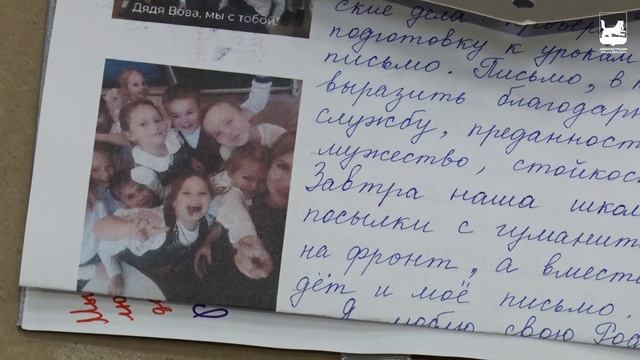 Дядя Вова, мы с тобой!
ские дела
подготовку к урокам
письмо. Письмо, в
выразить благодарн
службу, преданност
мужество, стойкос
Завтра наша школ
посылки с гуманит
на фронт, а вмест
дёт и моё письмо.
Я люблю свою Рос